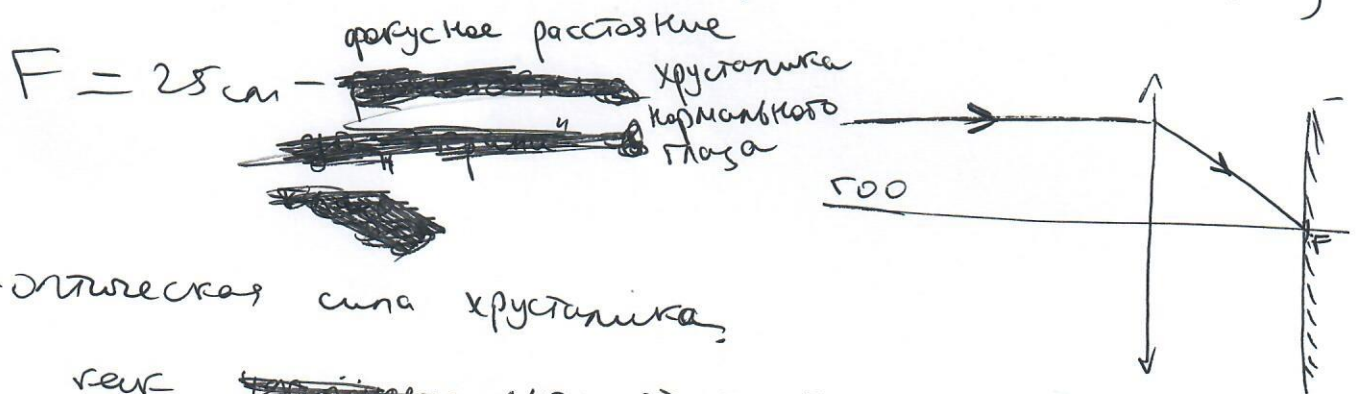 фокусное расстояние
F = 25 см - хрусталика
нормального
глаза
ГОО
F
оптическая сила хрусталика,